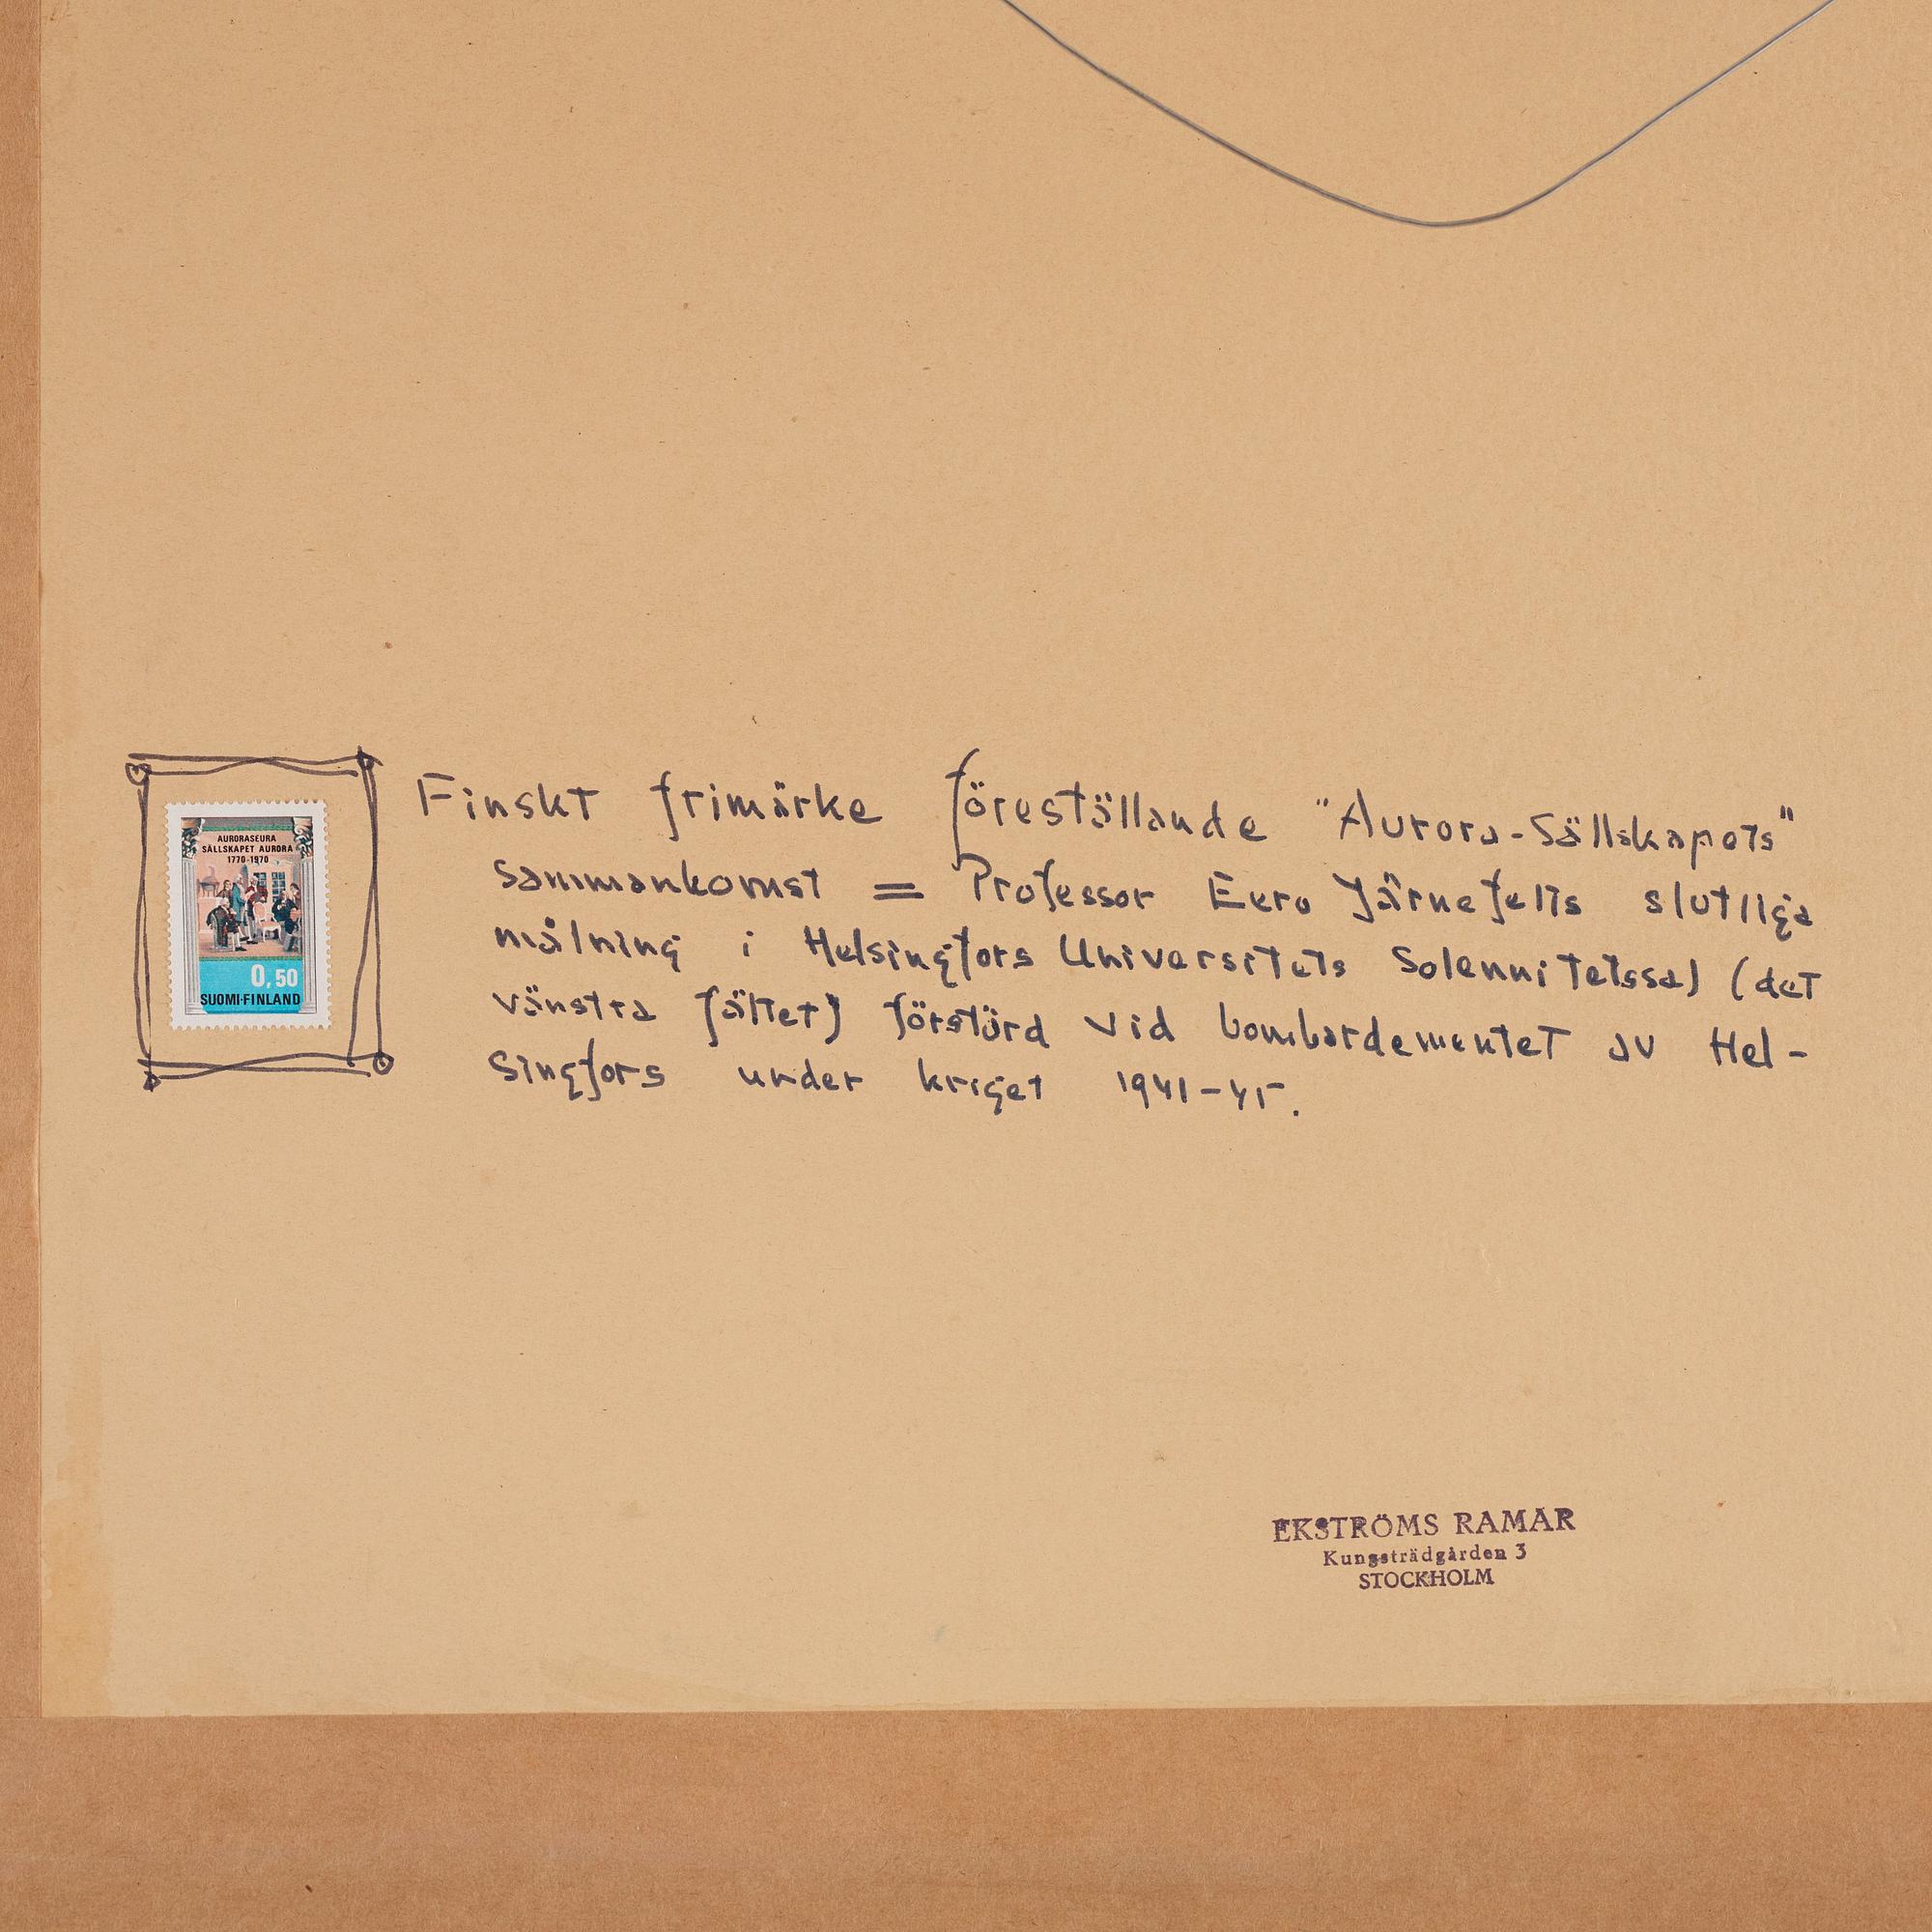 AURORASEURA
SÄLLSKAPET AURORA
1770-1970
0,50
SUOMI-FINLAND
Finskt frimärke föreställande "Aurora-Sällskapets"
sammankomst = Professor Eero Järnefelts slutliga
målning i Helsingfors Universitets Solennitetssal (det
vänstra fältet) förstörd vid bombardementet av Hel-
singfors under kriget 1941-45.
EKSTRÖMS RAMAR
Kungsträdgården 3
STOCKHOLM